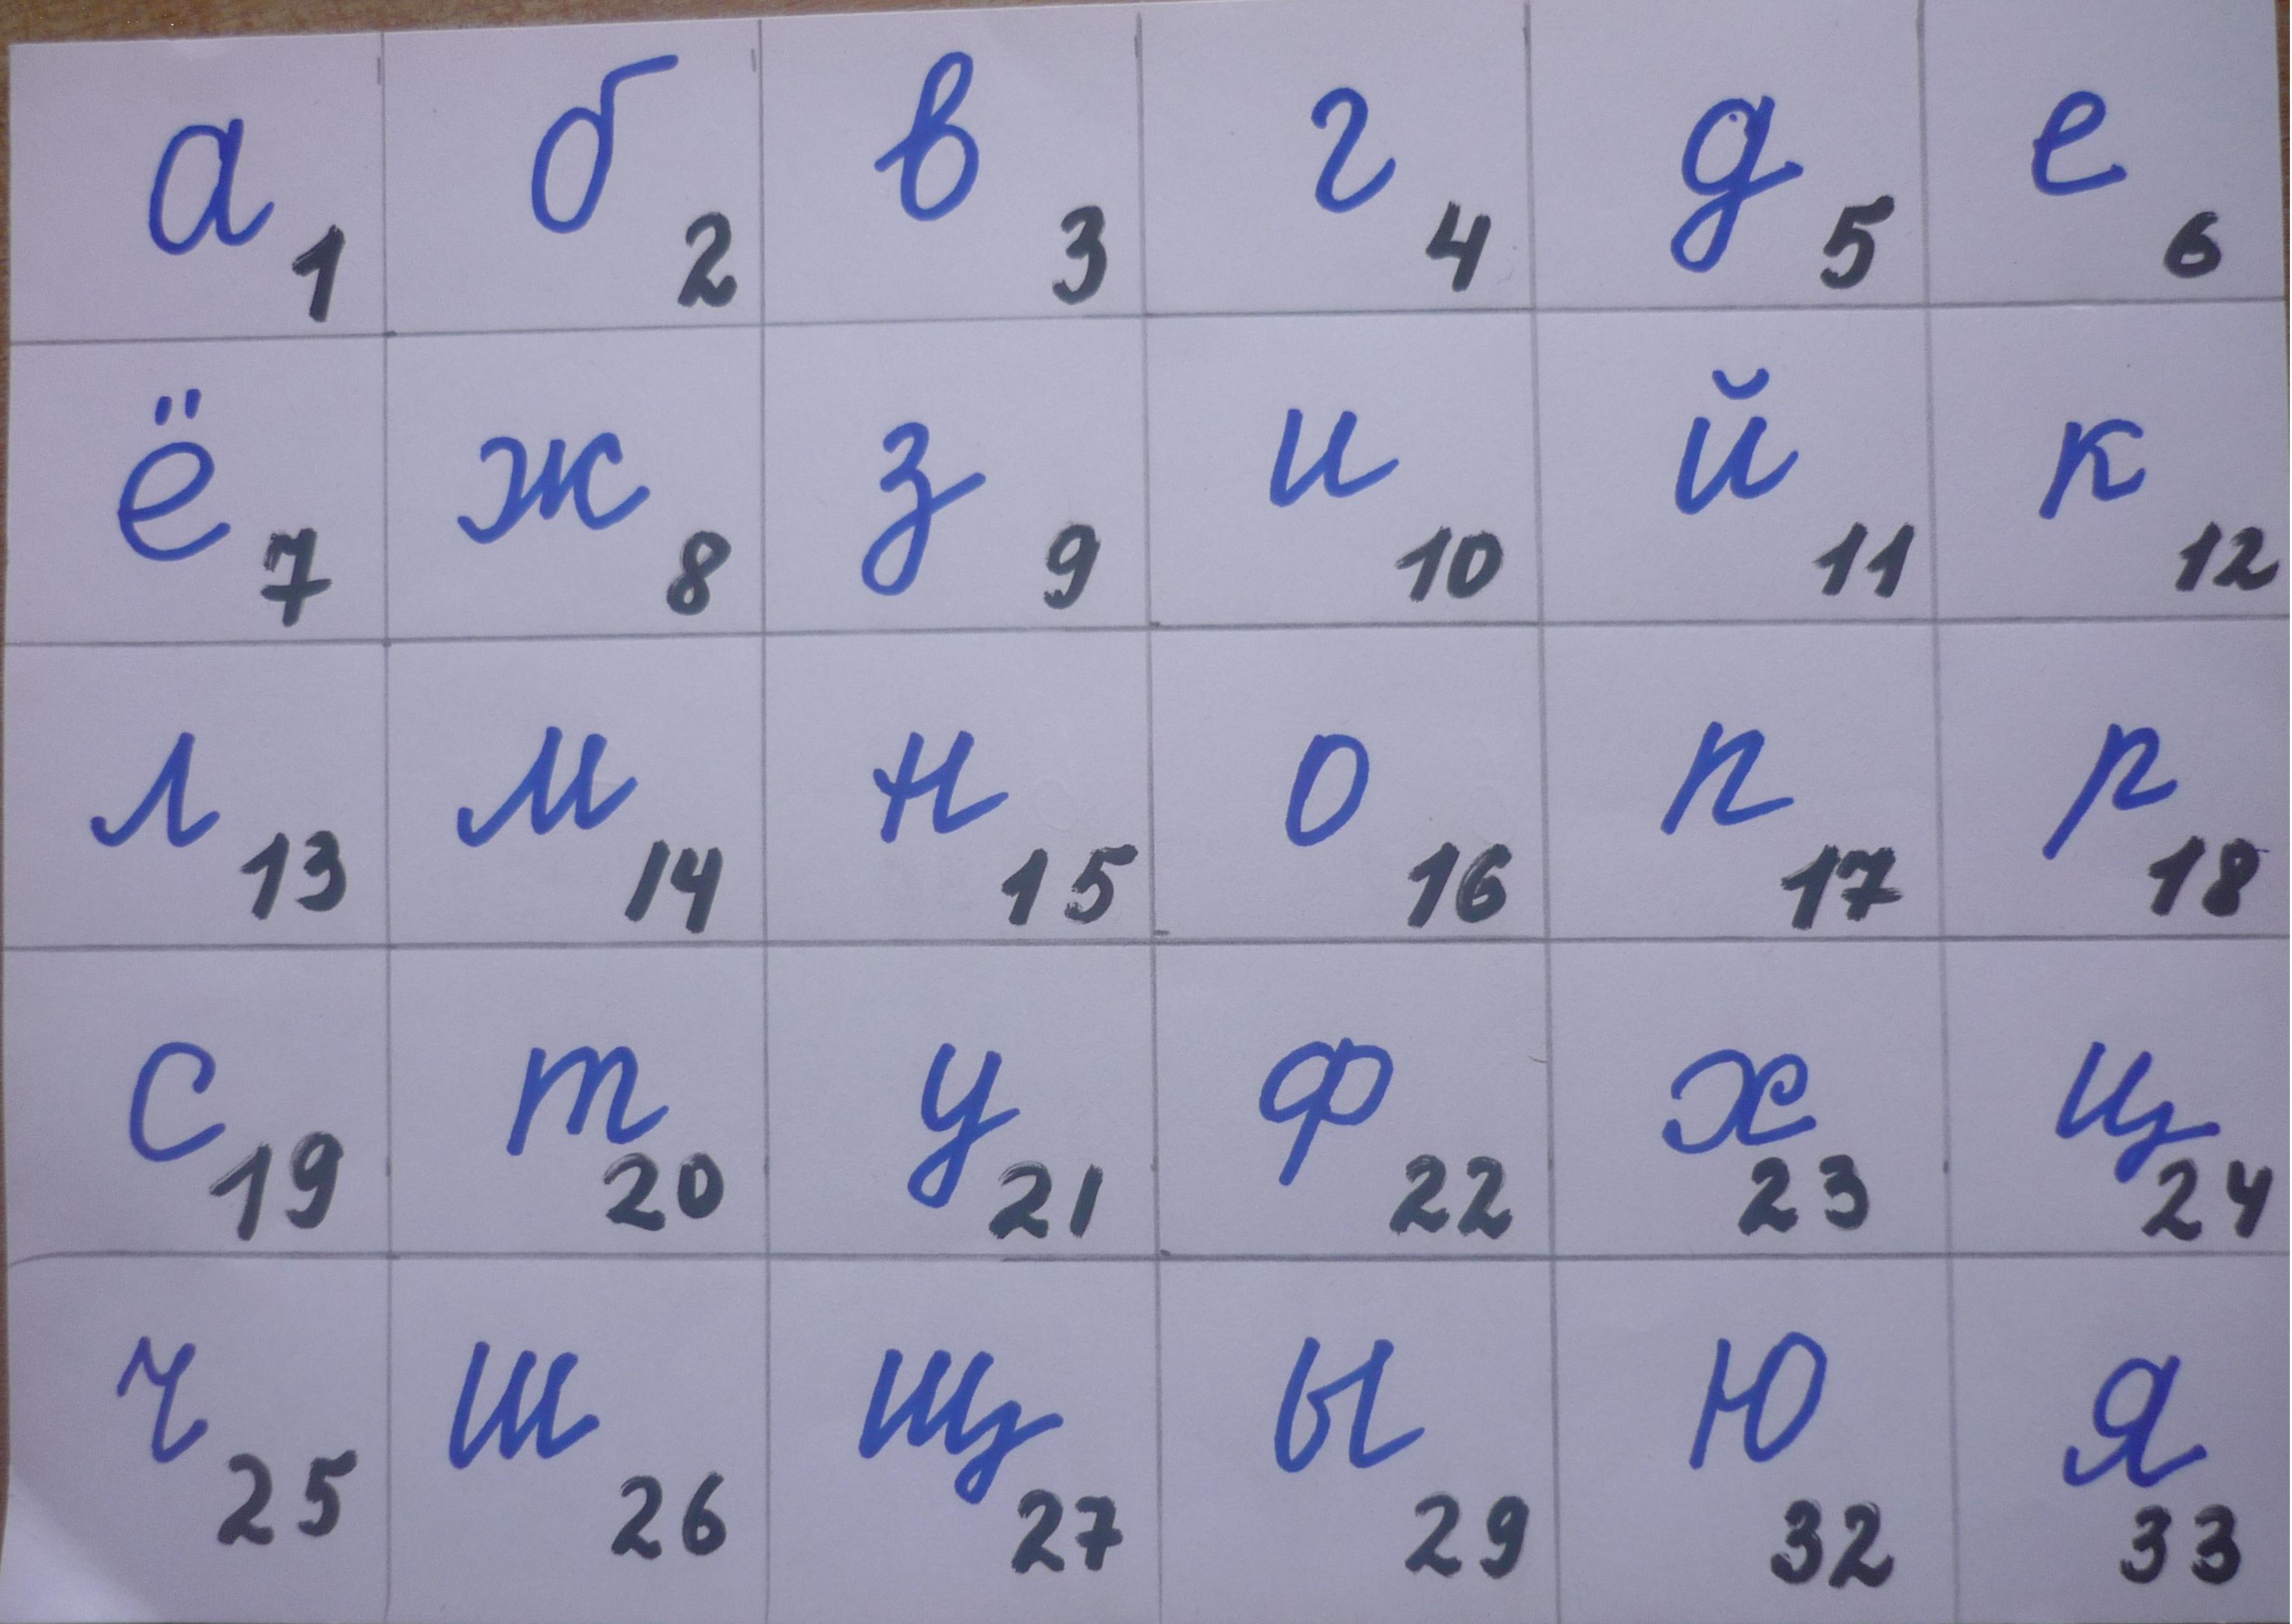 а 1 б 2 в 3 г 4 д 5 е 6
ё 7 ж 8 з 9 и 10 й 11 к 12
л 13 м 14 н 15 о 16 п 17 р 18
с 19 т 20 у 21 ф 22 х 23 ц 24
ч 25 ш 26 щ 27 ы 29 ю 32 я 33